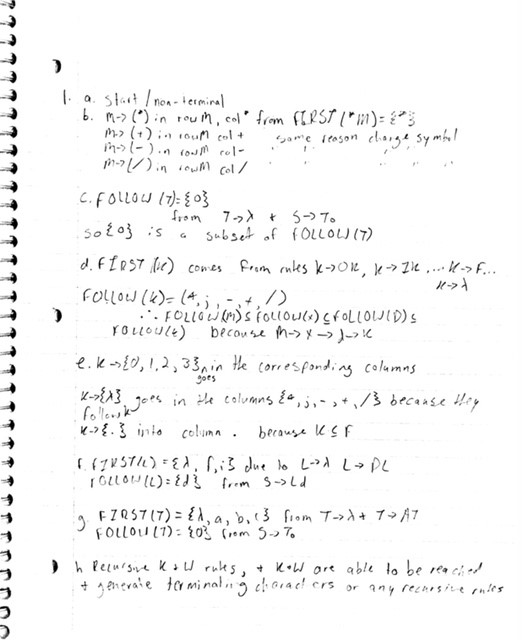 1. a. start / non-terminal
b. M→(*) in row M, col * from FIRST(*M)={*}
M→(+) in row M col + same reason change symbol
M→(-) in row M col - " " "
M→(/) in row M col / " " "
c. FOLLOW(T)={0}
from T→λ + S→T0
so {0} is a subset of FOLLOW(T)
d. FIRST(K) comes from rules K→0K, K→1K ... K→F...
K→λ
FOLLOW(K)=(*, j, -, +, /)
∴ FOLLOW(M) ⊆ FOLLOW(x) ⊆ FOLLOW(D) ⊆
FOLLOW(K) because M→x→J→K
e. K→{0,1,2,3} goes in the corresponding columns
K→{λ} goes in the columns {*, j, -, +, /} because they
follow K
K→{.} into column . because K ⊆ F
f. FIRST(L)={λ, f, i} due to L→λ L→DL
FOLLOW(L)={d} from S→Ld
g. FIRST(T)={λ, a, b, c} from T→λ + T→AT
FOLLOW(T)={0} from S→T0
h Recursive K + W rules, + K+W are able to be reached
+ generate terminating characters or any recursive rules